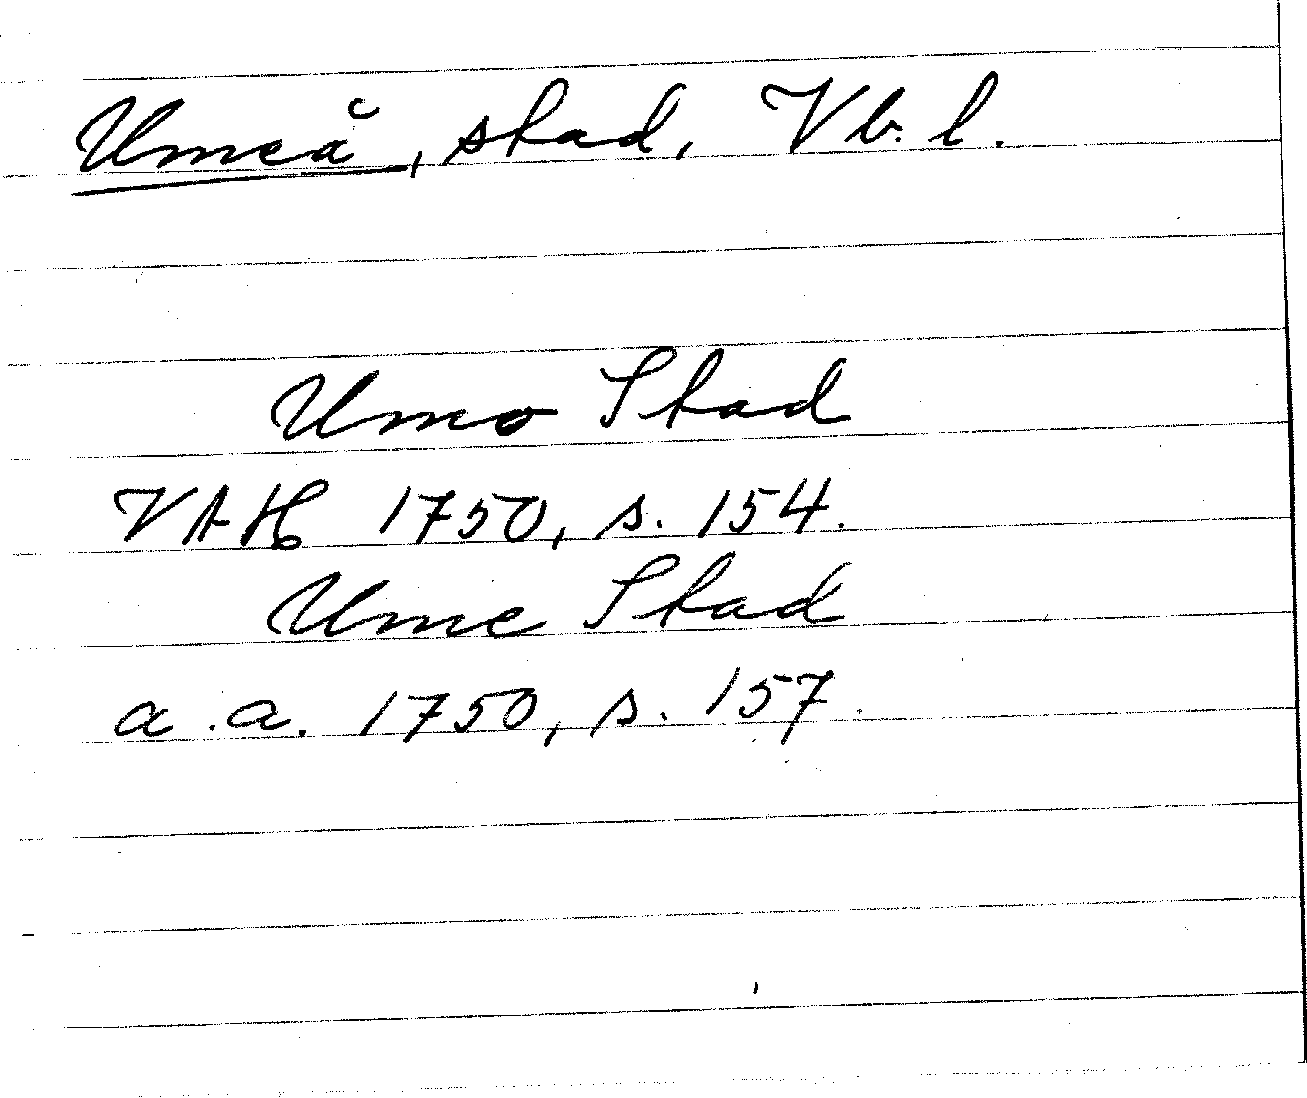 Umeå, stad, Vb. l.
Umo Stad
VAH 1750, s. 154.
Ume Stad
a.a. 1750, s. 157.